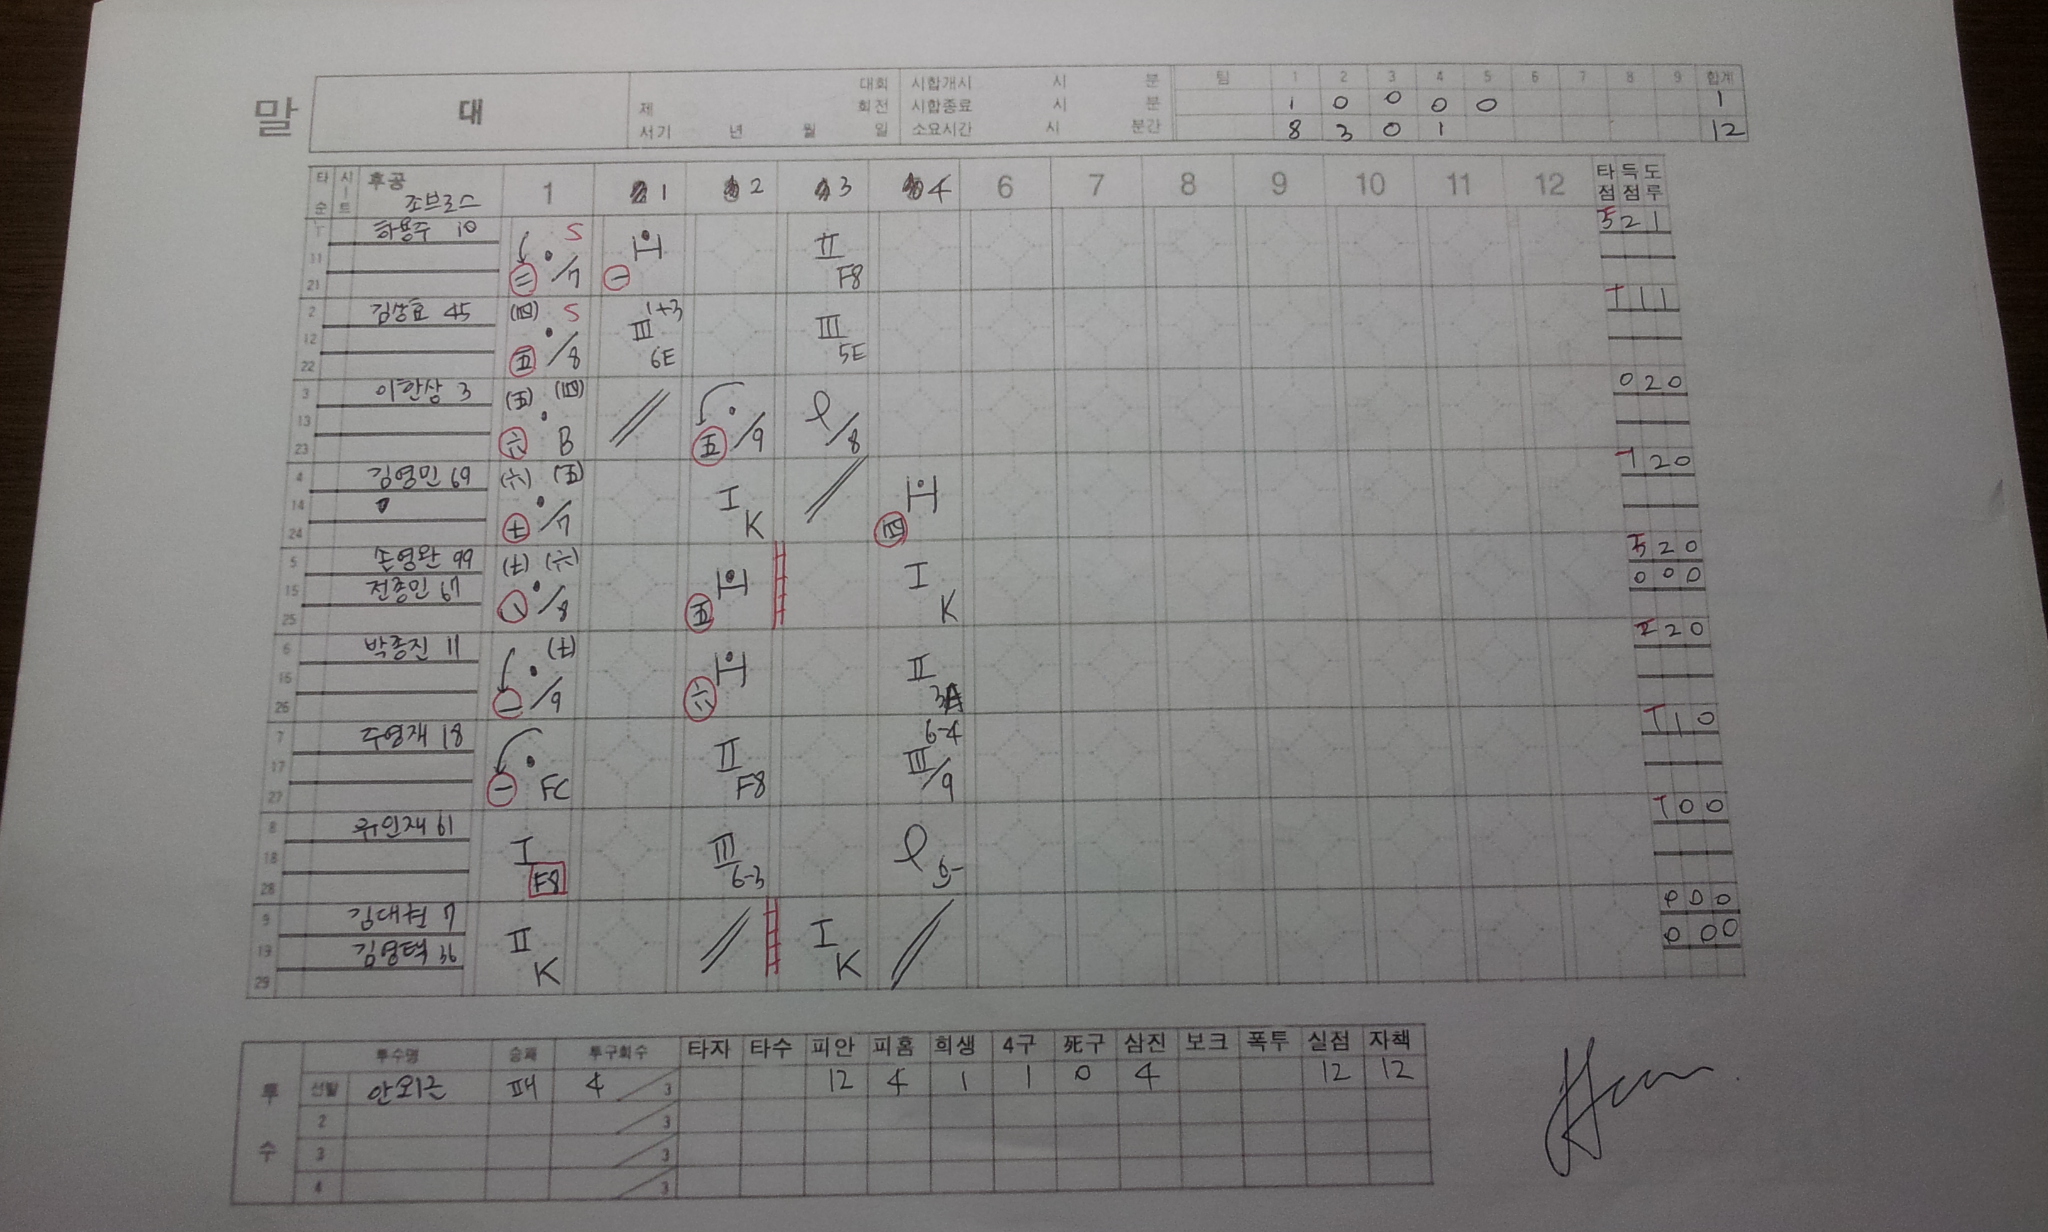 말
대
대회
제 회전
서기 년 월 일
시합개시 시 분
시합종료 시 분
소요시간 시 분간
팀 1 2 3 4 5 6 7 8 9 합계
1 0 0 0 0 1
8 3 0 1 12
타순 시트 후공 조브로스 1 1 2 3 4 6 7 8 9 10 11 12 타점 득점 도루
1 하용주 10 S H II 2 1
11 /7 F8
21
2 45 (四) S III 1+3 III 1 1
12 五 /8 6E 5E
22
3 이한상 3 (五) (四) 0 2 0
13 /9 /8
23 六 B 五
4 김영민 69 (六) (五) I H 2 0
14 七 /7 K 四
24
5 손영완 99 (七) (六) H I 2 0
15 전종민 67 八 /8 五 K 0 0 0
25
6 박종진 11 (七) H II 2 0
16 一 /9 六
26
7 18 II 6-4 1 0
17 一 FC F8 III /9
27
8 61 I III 0 0
18 F8 6-3 6-
28
9 김대현 7 II I 0 0 0
19 김영택 36 K K 0 0 0
29
투수
투수명 승패 투구회수 타자 타수 피안 피홈 희생 4구 死구 삼진 보크 폭투 실점 자책
선발 안외근 패 4 /3 12 4 1 1 0 4 12 12
2 /3
3 /3
4 /3